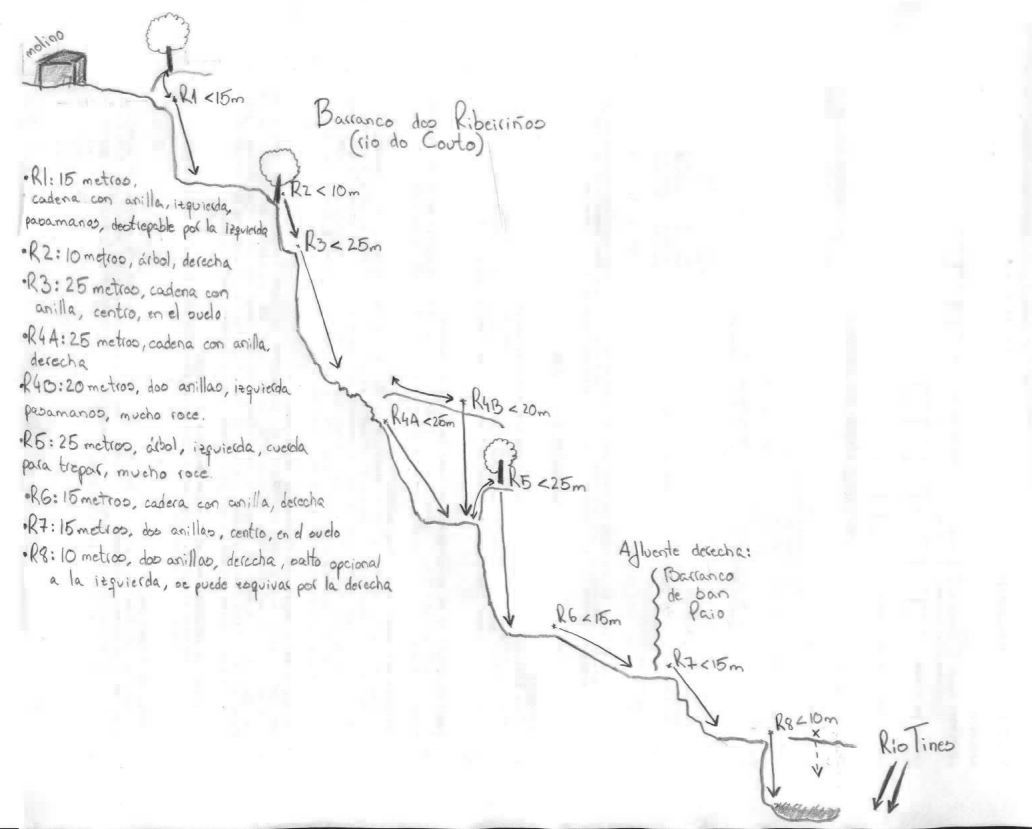 molino
R1 <15m
Barranco dos Ribeiriños
(río do Couto)
R2 < 10m
R3 < 25m
•R1: 15 metros,
cadena con anilla, izquierda,
pasamanos, destrepable por la izquierda
•R2: 10 metros, árbol, derecha
•R3: 25 metros, cadena con
anilla, centro, en el suelo.
•R4A: 25 metros, cadena con anilla,
derecha
R4B: 20 metros, dos anillas, izquierda
pasamanos, mucho roce.
•R5: 25 metros, árbol, izquierda, cuerda
para trepar, mucho roce.
•R6: 15 metros, cadena con anilla, derecha
•R7: 15 metros, dos anillas, centro, en el suelo
•R8: 10 metros, dos anillas, derecha, salto opcional
a la izquierda, se puede esquivar por la derecha
R4A <25m
R4B <20m
R5 <25m
Afluente derecha:
Barranco
de ban
Paio
R6 <15m
R7 <15m
R8 <10m
Río Tines